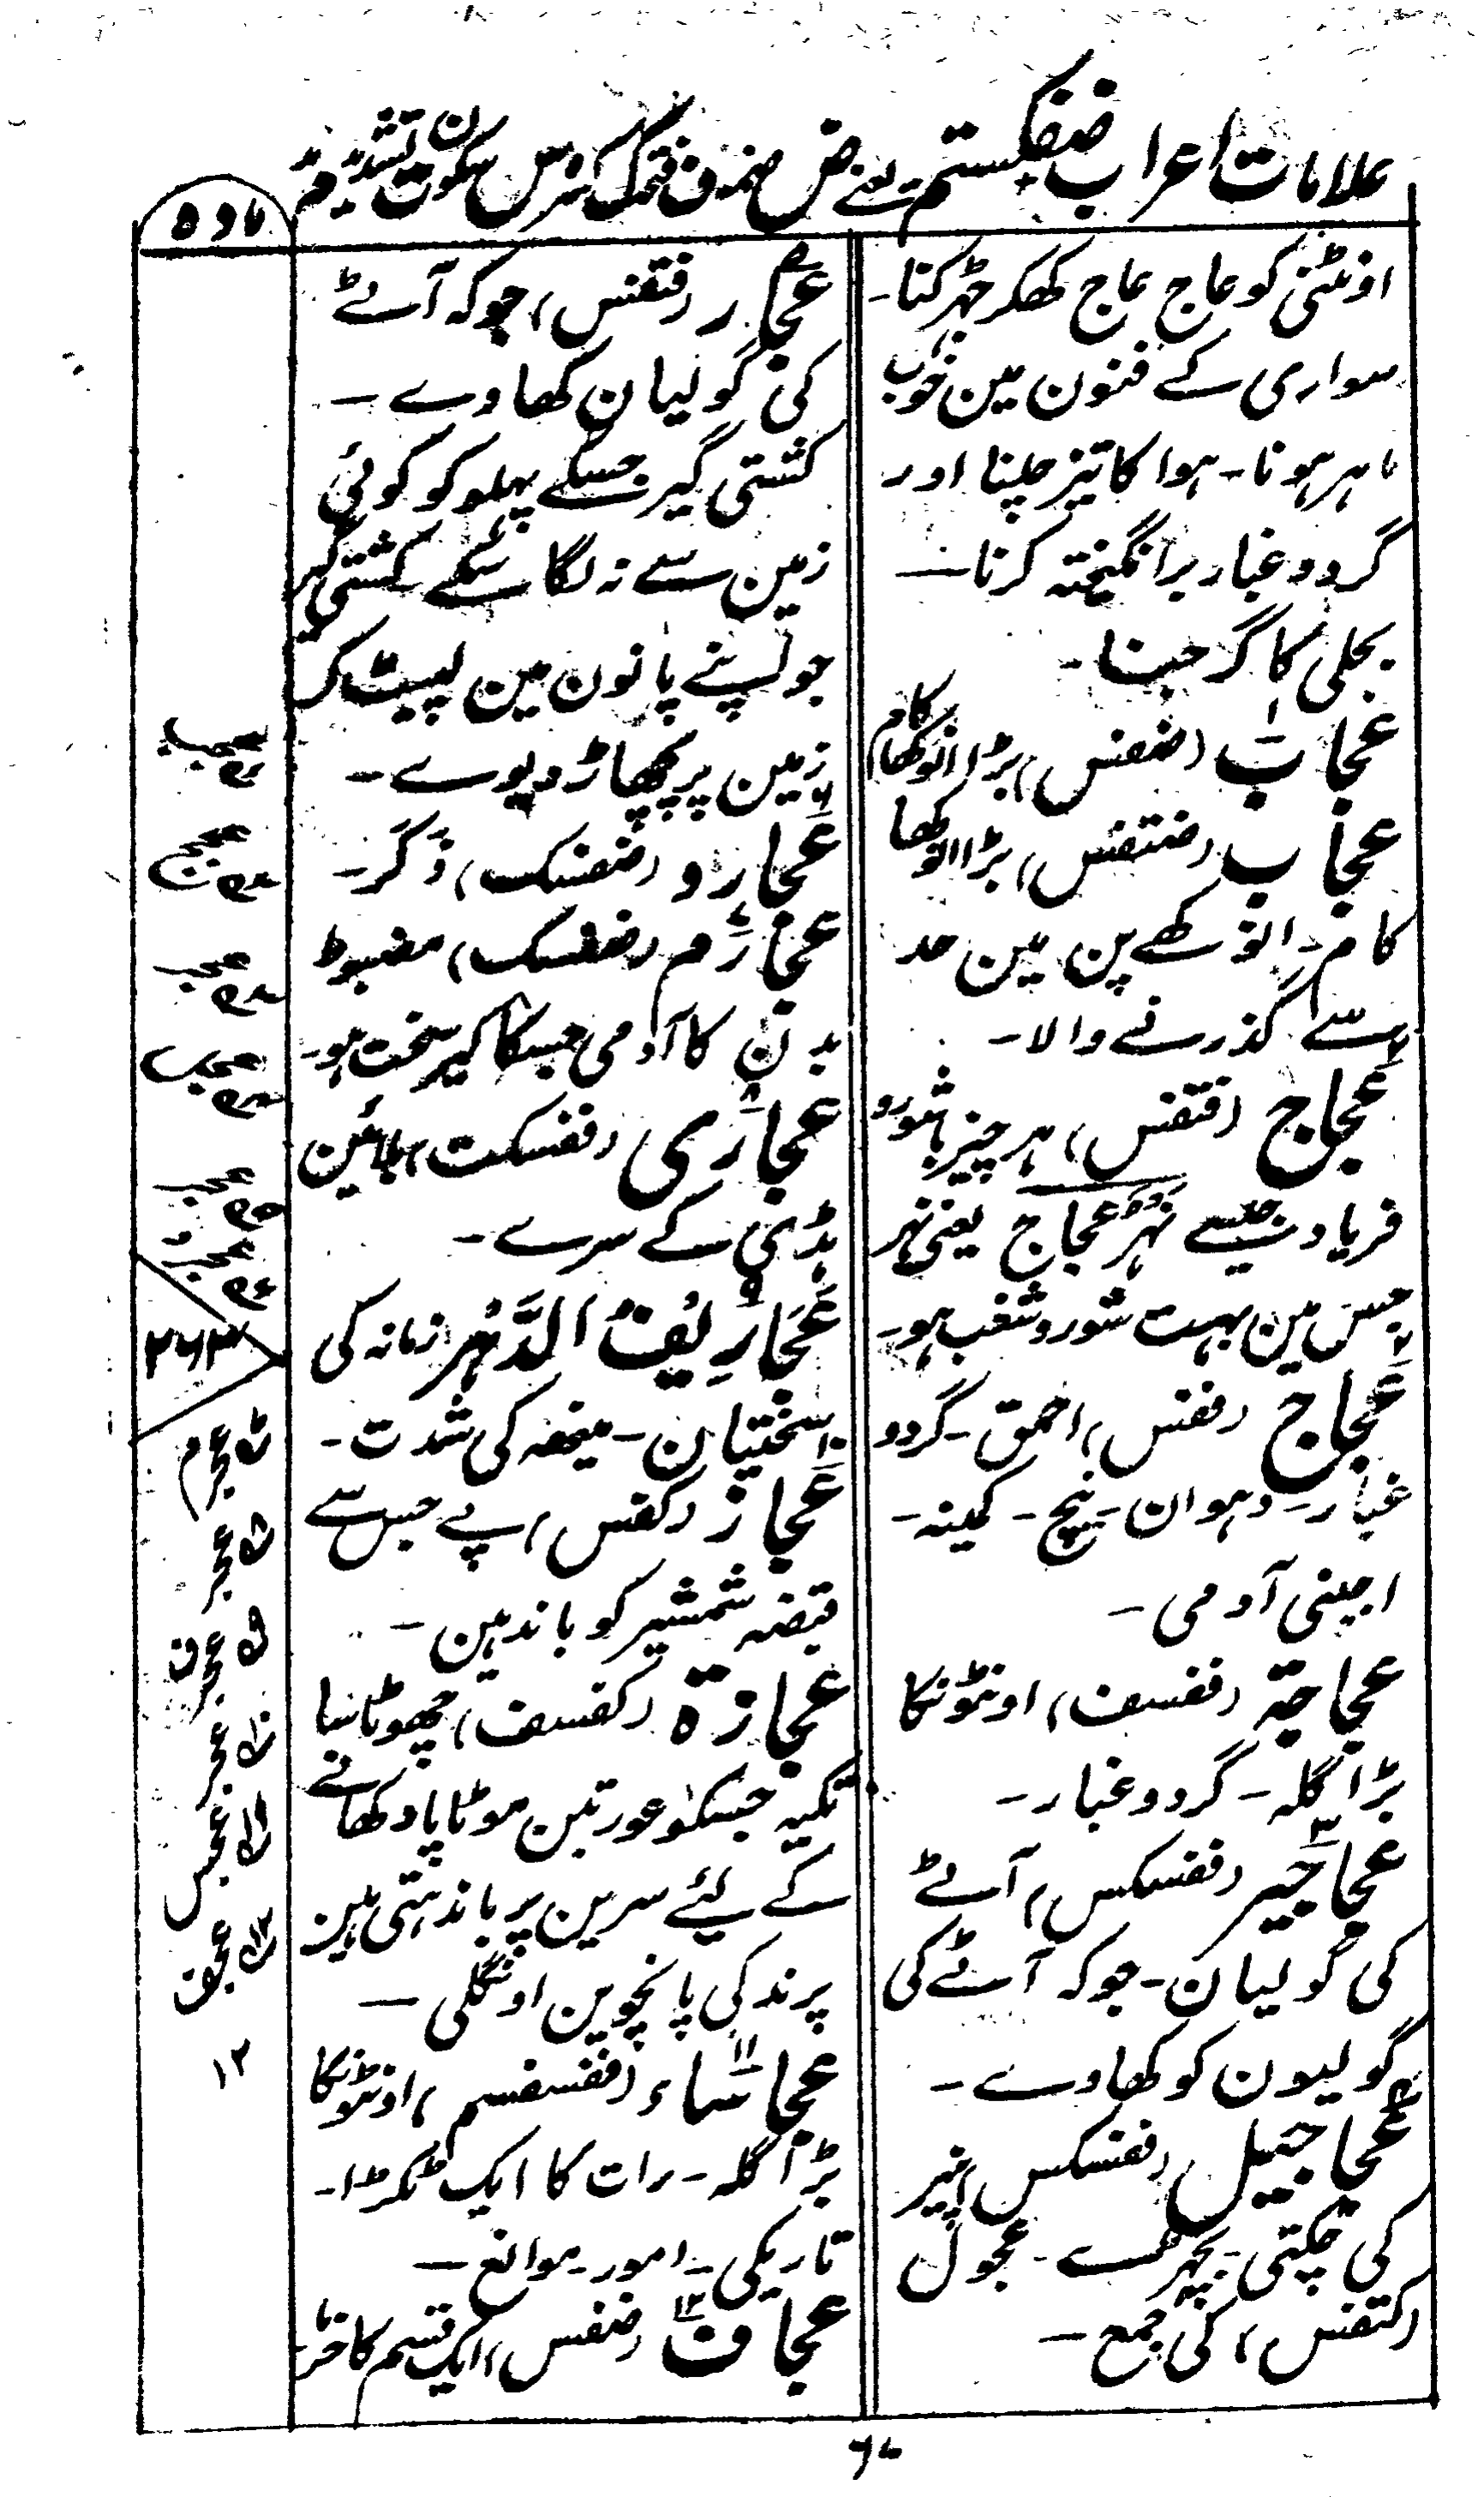 علامات اعراب ضفکستم یعنے ض ضمہ ف فتحہ ک کسرہ س سکون ت تشدید م مد
مادہ
اونٹنی کو عاج عاج کھکر جھڑکنا۔
سواری کے فنون مین خوب
ماہر ہونا۔ ہوا کا تیز چلنا اور
گرد و غبار برانگیختہ کرنا۔
بجلی کا گرجنا۔
عجاب (ضفنس) بڑا انوکھا کام
عجاب (ضتفنس) بڑا انوکھا
کام۔ انوکھے پن مین حد
سے گذرنے والا۔
عجاج (فتفنس) ہر چیز باشور و
فریاد جیسے نہر عجاج یعنی نہر
جس مین بہت شور و شغب ہو۔
عجاج (ففنس) احمق۔ گرد و
غبار۔ دہوان۔ نیچ۔ کمینہ۔
اجنبی آدمی۔
عجاجۃ (ففسف) اونٹونکا
بڑا گلہ۔ گرد و غبار۔
عجاجیر (ففسکس) آٹے
کی گولیان۔ جو کہ آٹے کی
گولیون کو کھاوے۔
عجاجیل (ففسکس) پنیر
کی چکتی۔ بچھڑے۔ عجول
(کتفنس) کی جمع۔
عجار (فتفنس) جو کہ آٹے
کی گولیان کھاوے۔
کشتی گیر جسکے پہلو کو کوئی
زمین سے نہ لگا سکے کشتی گیر
جو اپنے پانون مین لپیٹ کر
زمین پر پچھاڑ دیوے۔
عجارد (ضفسک) ذکر۔
عجارم (ضفسک) مضبوط
بدن کا آدمی جسکا کیر سخت ہو۔
عجاری (ففسکت) بلائین
ہڈی کے سرے۔
عجاریف الدہر زمانہ کی
سختیان۔ مینھ کی شدت۔
عجاز (کفنس) پے جس سے
قبضہ شمشیر کو باندہین۔
عجازۃ (کفسف) چھوٹا سا
تکیہ جسکو عورتین موٹاپا دکھانے
کے لیئے سرین پر باندہتی ہین
پرند کی پانچوین اونگلی۔
عجاساء (ففسفسم) اونٹونکا
بڑا گلہ۔ رات کا ایک ٹکڑا۔
تاریکی۔ امور۔ موانع۔
عجاف (ضفنس) ایک قسم کا خرما
عجرم
عجر
عجرف
عجز
عجس
عجف
۱۲